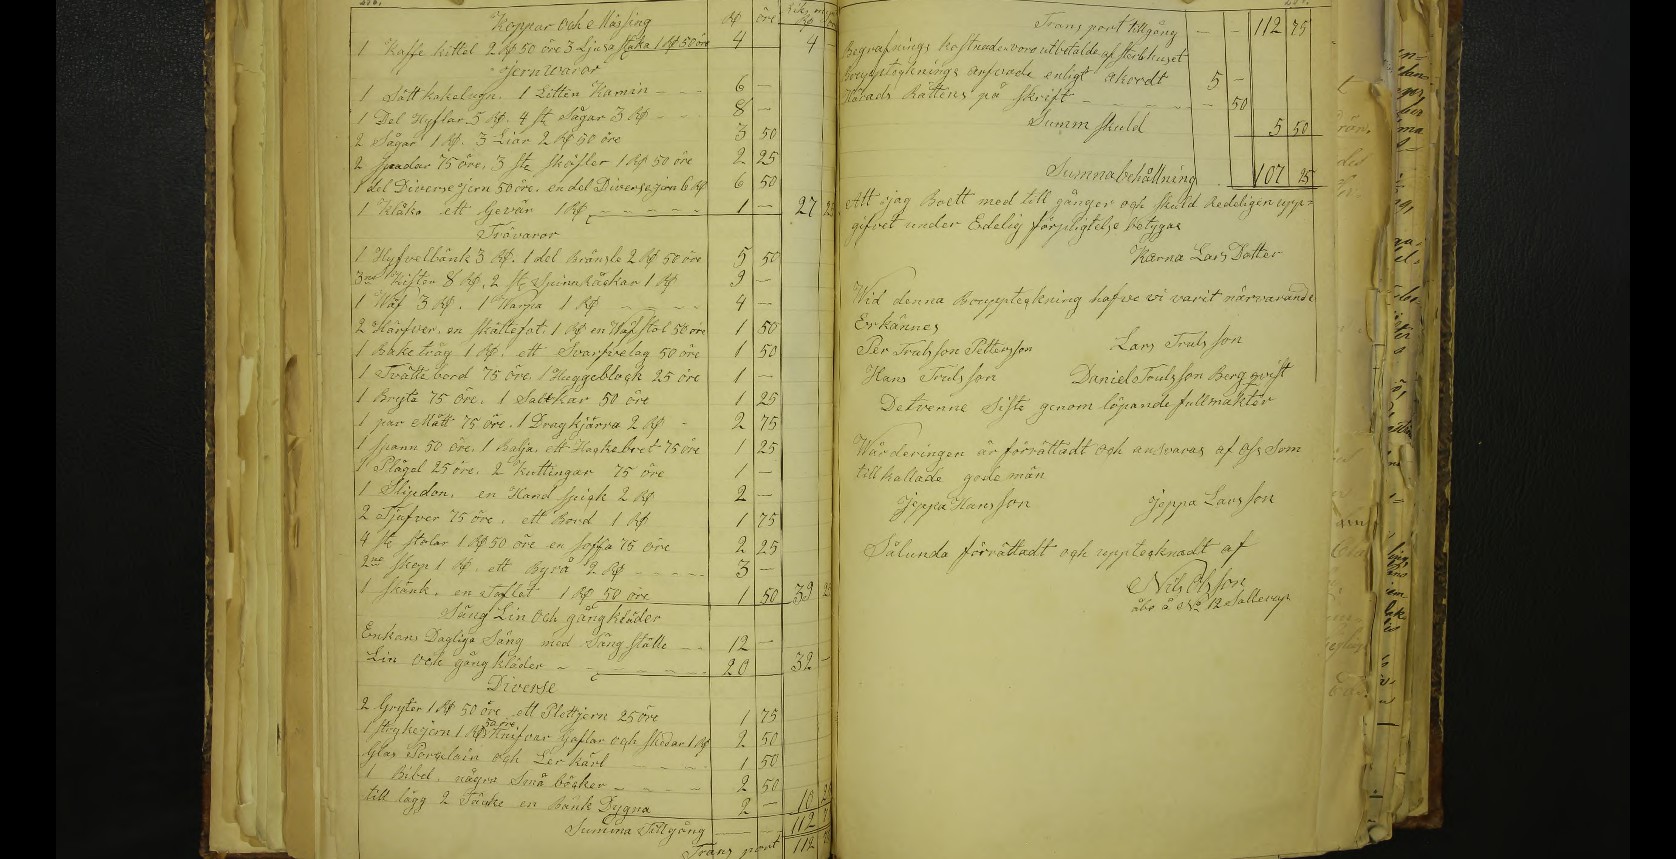 Koppar och Mässing
1 Kaffe kittel 2 Rdr 50 öre 3 Ljusa staka 1 Rdr 50 öre 4 4 —
Jernwaror
1 Sätt kakelugn. 1 Litten Kamin 6 —
1 Del Hyflar 5 Rdr. 4 st Sågar 3 Rdr 8 —
2 Sågar 1 Rdr. 3 Liar 2 Rdr 50 öre 3 50
2 Spadar 75 öre. 3 ste Skoflor 1 Rdr 50 öre 2 25
1 del Diverse jern 50 öre. en del Diverse jern 6 Rdr 6 50
1 Klåka ett Gevär 1 Rdr 1 — 27 25
Trävaror
1 Hyfvelbänk 3 Rdr. 1 del Bränsle 2 Rdr 50 öre 5 50
3ne Kistor 8 Rdr. 2 ste Spinnråckar 1 Rdr 9 —
1 Wäf 3 Rdr. 1 Harpa 1 Rdr 4 —
2 Härfver. en skättefot. 1 Rdr en Wäfstol 50 öre 1 50
1 Baketråg 1 Rdr. ett Svarfvelag 50 öre 1 50
1 Tvättebord 75 öre. 1 Huggeblock 25 öre 1 —
1 Bryta 75 öre. 1 Saltkar 50 öre 1 25
1 par Mått 75 öre. 1 Dragkjärra 2 Rdr 2 75
1 spann 50 öre. 1 Balja. ett Hackebret 75 öre 1 25
1 Plägel 25 öre. 2 Kuttingar 75 öre 1 —
1 Slipdon. en Hand spick 2 Rdr 2 —
2 Tjufver 75 öre. ett Bord 1 Rdr 1 75
4 ste Stolar 1 Rdr 50 öre en soffa 75 öre 2 25
2ne Skop 1 Rdr. ett Byrå 2 Rdr 3 —
1 Skänk. en Toflet 1 Rdr 50 öre 1 50 39
Säng Lin och gångkläder
Enkans Dagliga Säng med Säng ställe 12 —
Lin och gång kläder 20 32 —
Diverse
2 Gryter 1 Rdr 50 öre ett Plettjern 25 öre 1 75
1 strykejern 1 Rdr 50 öre Knifvar gaflar och skedar 1 Rdr 2 50
Glas Porslain och Lerkärl 1 50
1 Bibel. några Små böcker 2 50
till lägg 2 Säcke en Bänk Dygna 2 — 10
Summa Tillgång 112
Trans port 112
Trans port tillgång — — 112 75
Begrafnings kostnader vore utbetalde af sterbhuset
Boupptecknings arfvode enligt akordt 5 —
Härads Rättens på skrift — 50
Summ skuld 5 50
Summa behållning 107 25
Att jag Boett med till gånger och skuld Redeligen upp=
gifvet under Edelig förpligtelse betygas
Karna Lars Dotter
Wid denna Bouppteckning hafve vi varit närvarande
Erkännes
Per Truls son Pettersson Lars Truls son
Hans Trulsson Daniel Truls son Bergqvist
De tvenne siste genom löpande fullmakter
Wärderingen är förrättadt och ansvaras af oss som
till kallade gode män
Jeppa Hansson Jeppa Larsson
Sålunda förrättadt och upptecknadt af
Nils Olsson
åbo å No 12 Sallerup